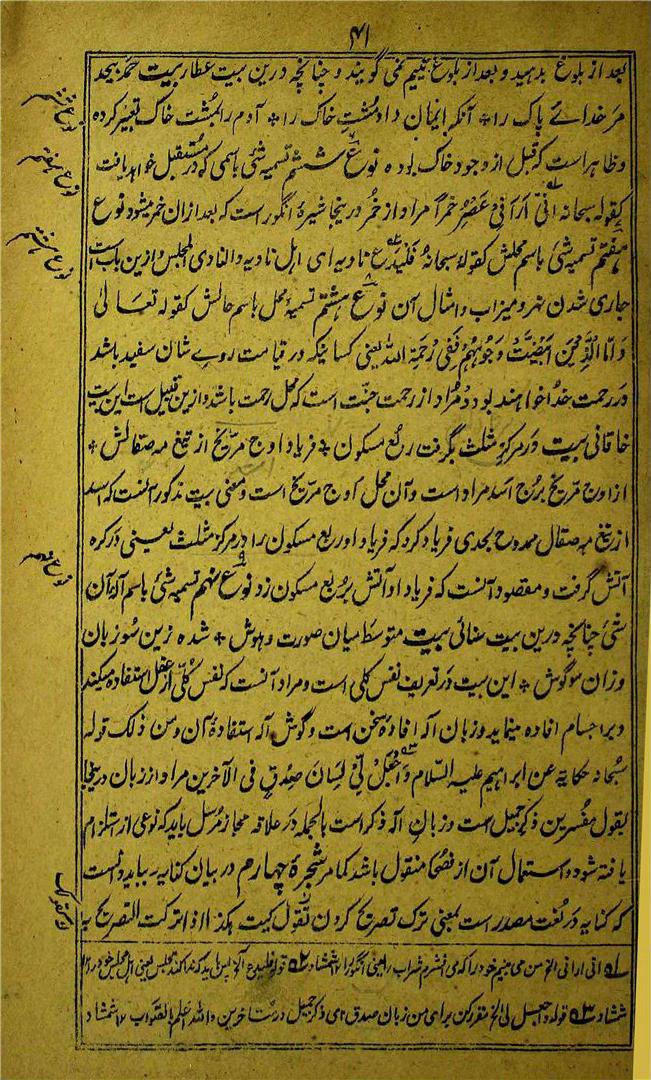 ۴۱
بعد از بلوغ بدهید و بعد از بلوغ یتیم نمی گویند و چنانچه درین بیت عطار بیت حمد بیحد
نوع ششم
مر خدائے پاک را ٭ آنکه ایمان داد مشتِ خاک را ٭ آدم را بمُشت خاک تعبیر کرده
و ظاهر است که قبل از وجود خاک بوده نوع ششم تسمیه شئ باسمی که در مستقبل خواهد یافت
نوع هفتم
کقوله سبحانه انی اَرَانِیْ اَعْصِرُ خَمْرًا مراد از خمر درینجا شیرۀ انگور است که بعد ازان خمر میشود نوع
نوع هشتم
هفتم تسمیه شئ باسم محلش کقوله سبحانه فَلْیَدْعُ نادیه ای اهل نادیه والنادی المجلس و ازین باب است
جاری شدن نهر و میزاب و امثال آن نوع هشتم تسمیۀ محل باسم حالش کقوله تعالی
وَ اَمَّا الَّذِیْنَ ابْیَضَّتْ وُجُوْهُهُمْ فَفِیْ رَحْمَةِ اللّٰهِ یعنی کسانیکه در قیامت روے شان سفید باشد
در رحمت خدا خواهند بود و مراد از رحمت جنت است که محل رحمت باشد و ازین قبیل است این بیت
خاقانی بیت در مرکز مثلث بگرفت ربع مسکون ٭ فریاد اوج مریخ از تیغ مه صقالش ٭
از اوج مریخ برج اسد مراد است و آن محل اوج مریخ است و معنی بیت مذکور آنست که اسد
از تیغ مه صقال ممدوح بحدی فریاد کرد که فریاد او ربع مسکون را در مرکز مثلث یعنی در کره
نوع نهم
آتش گرفت و مقصود آنست که فریاد او آتش بربع مسکون زد نوع نهم تسمیه شئ باسم آلۀ آن
شئ چنانچه درین بیت سنائی بیت متوسط میان صورت و هوش ٭ شده زین سو زبان
و زان سو گوش ٭ این بیت در تعریف نفس کلی است و مراد آنست که نفس کلی از عقل استفاده میکند
و بر اجسام افاده مینماید و زبان آله افادۀ سخن است و گوش آله استفادۀ آن و من ذلک قوله
سبحانه حکایة عن ابراهیم علیه السلام وَاجْعَلْ لِّیْ لِسَانَ صِدْقٍ فی الآخرین مراد از زبان درینجا
بقول مفسرین ذکر جمیل است و زبان آلۀ ذکر است بالجمله در علاقه مجاز مرسل باید که نوعی از استلزام
یافته شود و استعمال آن از فصحا منقول باشد کما مر شجرۀ چهارم در بیان کنایه بباید دانست
که کنایه در لغت مصدر است بمعنی ترک تصریح کردن تقول کنیت بکذا اذا ترکت التصریح به
۱ے انی ارانی الخ من می بینم خود را که می فشرم شراب را یعنی انگور را ۱۲ شمشاد ۲ے قوله فلیدع الخ پس باید که ندا کند مجلس یعنی اهل مجلس خود را ۱۲
شمشاد ۳ے قوله واجعل لی الخ مقرر کن برای من زبان صدق ای ذکر جمیل در متاخرین والله اعلم بالصواب ۱۲ شمشاد